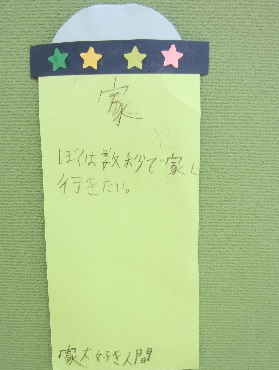 家
ぼくは数秒で家に
行きたい。
家大好き人間